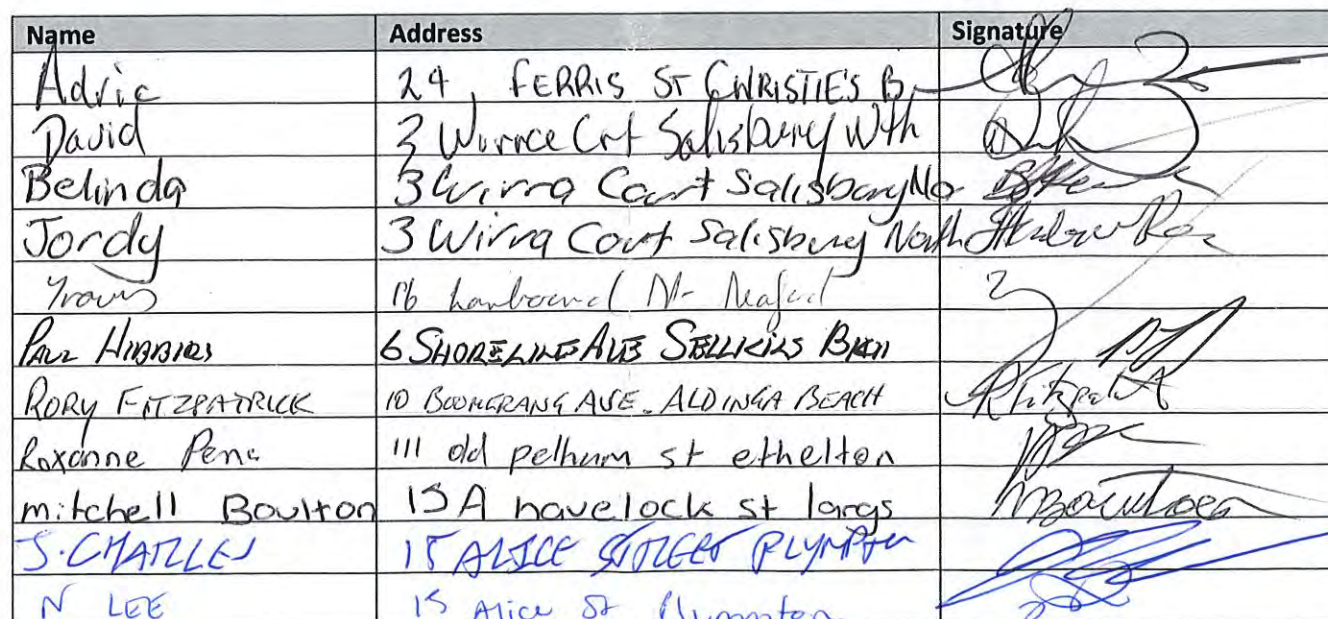 Name Address Signature
Adric 24, FERRIS ST CHRISTIE'S B.
David 3 Crt Salisbury Nth
Belinda 3 Wirra Court Salisbury No
Jordy 3 Wirra Court Salisbury North
Travis 16
PAUL HIBBIRS 6 SHORELINE AVE SELLICKS BCH
RORY FITZPATRICK 10 BOOMERANG AVE. ALDINGA BEACH
Roxanne Pena 111 old pelham st ethelton
mitchell Boulton 15A havelock st largs
S. CHARLES 15 ALICE STREET PLYMPTON
N LEE 15 Alice St Plympton